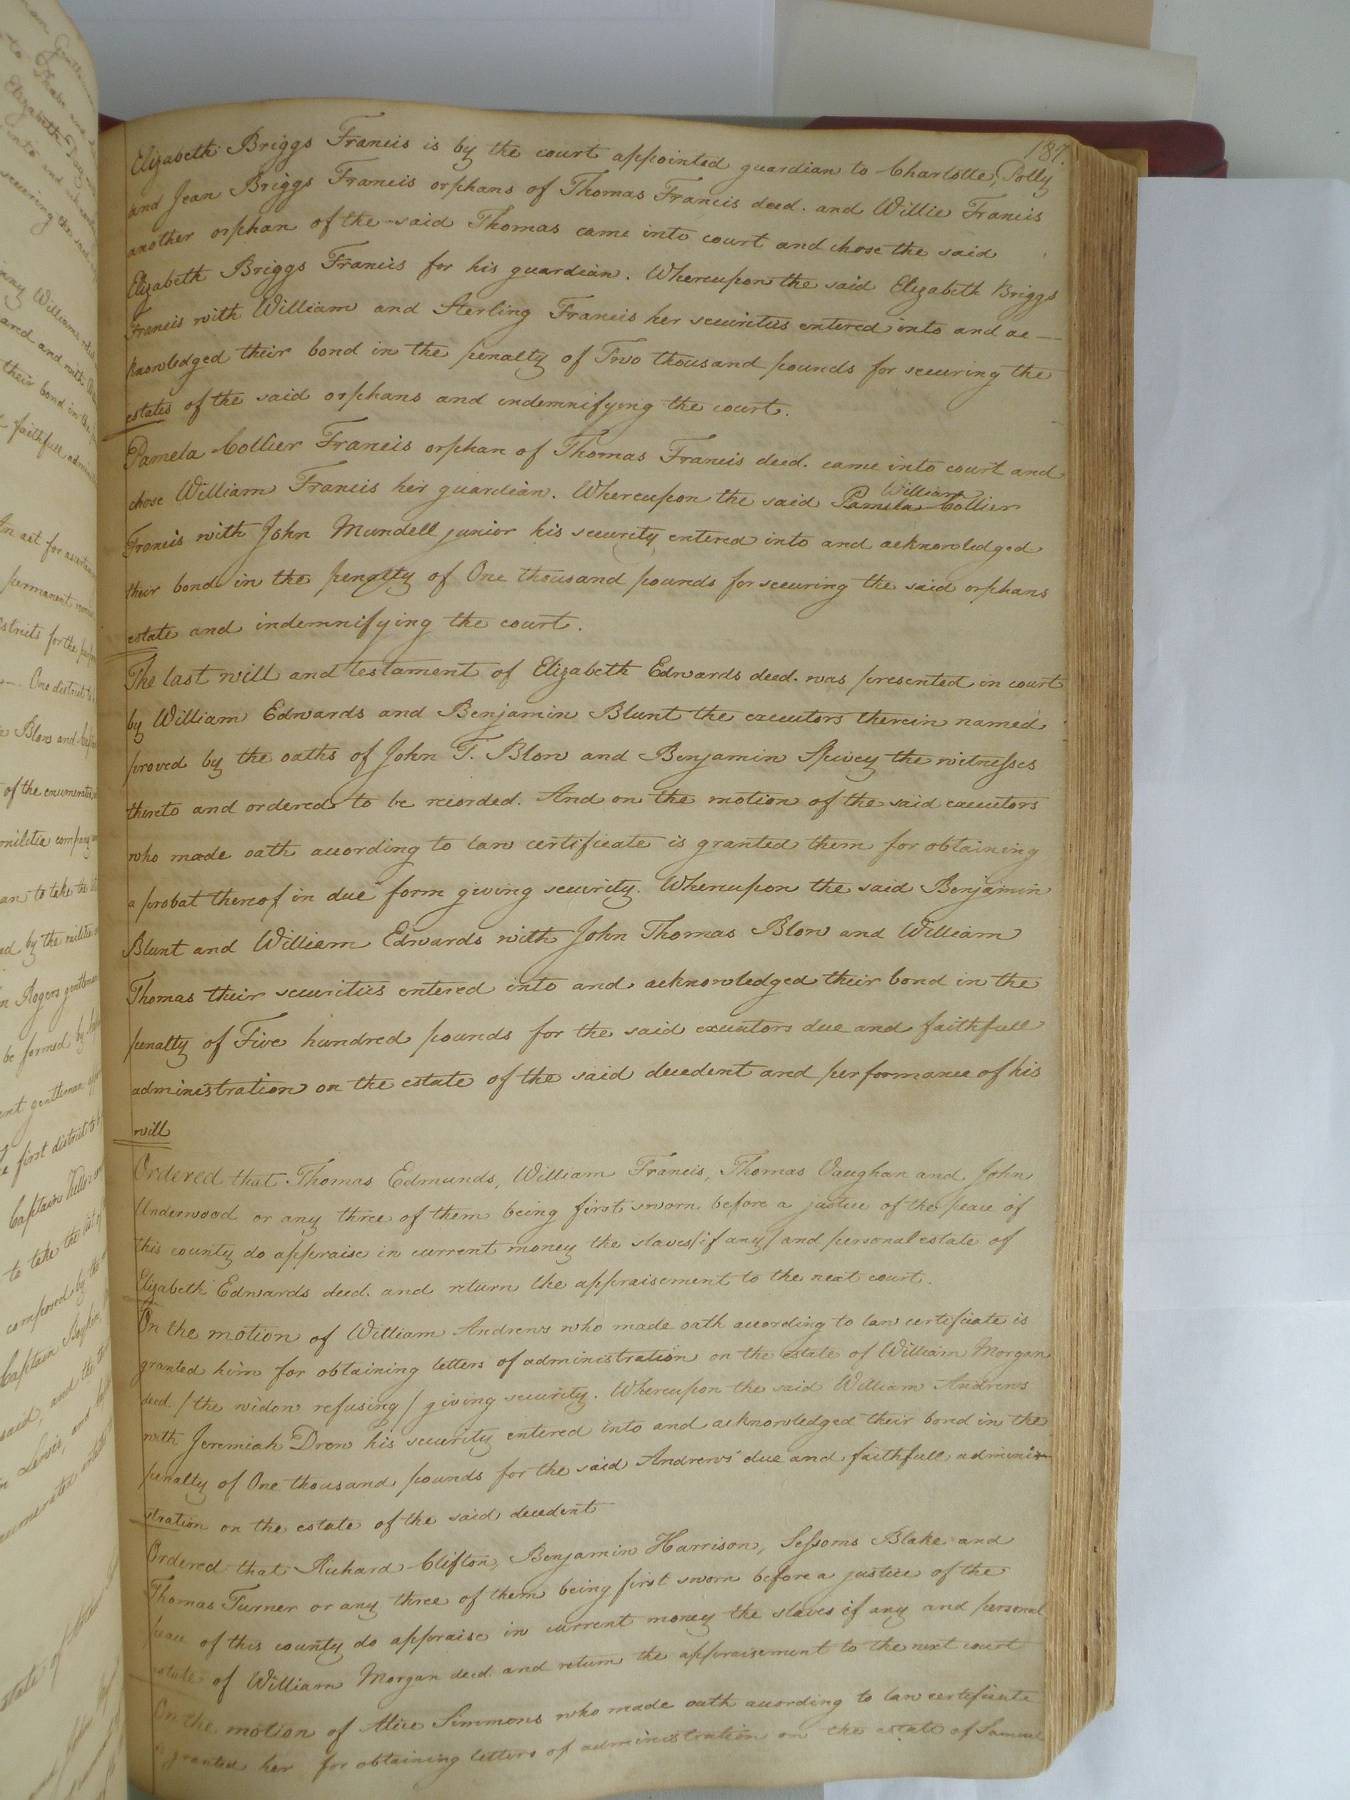 187.
Elizabeth Briggs Francis is by the court appointed guardian to Charlotte, Polly
and Jean Briggs Francis orphans of Thomas Francis deced. and Willie Francis
another orphan of the said Thomas came into court and chose the said
Elizabeth Briggs Francis for his guardian. Whereupon the said Elizabeth Briggs
Francis with William and Sterling Francis her securities entered into and ac—
knowledged their bond in the penalty of Two thousand pounds for securing the
estates of the said orphans and indemnifying the court.
Pamela Collier Francis orphan of Thomas Francis deced. came into court and
William
chose William Francis her guardian. Whereupon the said Pamela Collier
Francis with John Mundell junior his security entered into and acknowledged
their bond in the penalty of One thousand pounds for securing the said orphans
estate and indemnifying the court.
The last will and testament of Elizabeth Edwards deced. was presented in court
by William Edwards and Benjamin Blunt the executors therein named
proved by the oaths of John T. Blow and Benjamin Spivey the witnesses
thereto and ordered to be recorded. And on the motion of the said executors
who made oath according to law certificate is granted them for obtaining
a probat thereof in due form giving security. Whereupon the said Benjamin
Blunt and William Edwards with John Thomas Blow and William
Thomas their securities entered into and acknowledged their bond in the
penalty of Five hundred pounds for the said executors due and faithfull
administration on the estate of the said decedent and performance of his
will
Ordered that Thomas Edmunds, William Francis, Thomas Vaughan and John
Underwood or any three of them being first sworn before a justice of the peace of
this county do appraise in current money the slaves (if any) and personal estate of
Elizabeth Edwards deced. and return the appraisement to the next court.
On the motion of William Andrews who made oath according to law certificate is
granted him for obtaining letters of administration on the estate of William Morgan
deced. / the widow refusing / giving security. Whereupon the said William Andrews
with Jeremiah Drew his security entered into and acknowledged their bond in the
penalty of One thousand pounds for the said Andrews' due and faithfull admini-
stration on the estate of the said decedent
Ordered that Richard Clifton, Benjamin Harrison, Sessoms Blake and
Thomas Turner or any three of them being first sworn before a justice of the
peace of this county do appraise in current money the slaves if any and personal
estate of William Morgan deced. and return the appraisement to the next court
On the motion of Alice Simmons who made oath according to law certificate
is granted her for obtaining letters of administration on the estate of Samuel